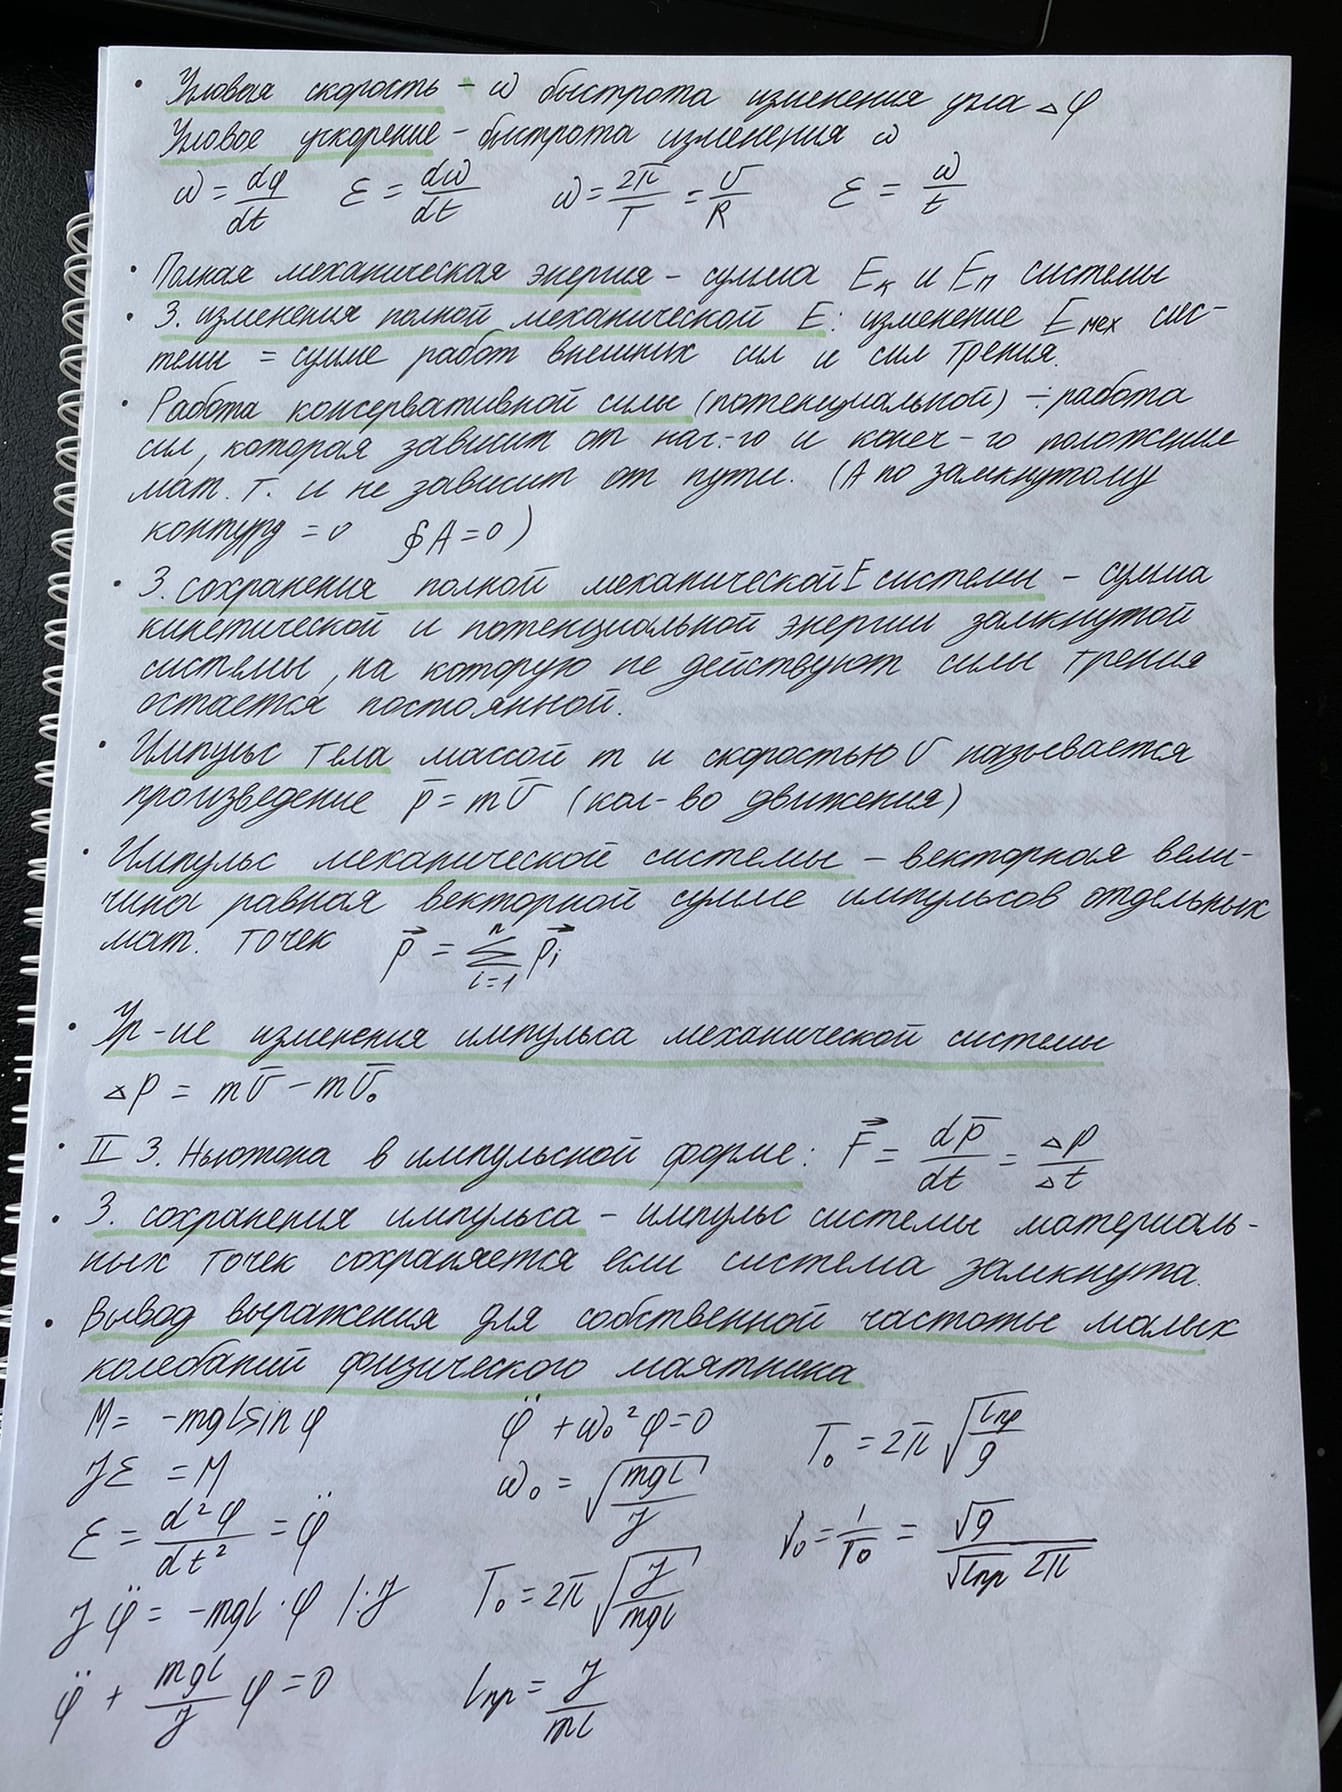 • Угловая скорость - ω быстрота изменения угла △φ
Угловое ускорение - быстрота изменения ω
ω = dφ/dt   ε = dω/dt   ω = 2π/T = υ/R   ε = ω/t
• Полная механическая энергия - сумма Eк и Eп системы
• З. изменения полной механической E: изменение Eмех сис-
темы = сумме работ внешних сил и сил трения.
• Работа консервативной силы (потенциальной) ÷ работа
сил, которая зависит от нач.-го и конеч-го положения
мат. т. и не зависит от пути. (A по замкнутому
контуру = 0   ∮A = 0)
• З. сохранения полной механической E системы - сумма
кинетической и потенциальной энергии замкнутой
системы, на которую не действуют силы трения
остается постоянной.
• Импульс тела массой m и скоростью υ называется
произведение p̄ = mῡ (кол-во движения)
• Импульс механической системы - векторная вели-
чина равная векторной сумме импульсов отдельных
мат. точек   p⃗ = Σ(i=1, n) p⃗i
• Ур-ие изменения импульса механической системы
△p = mῡ - mῡ₀
• II З. Ньютона в импульсной форме: F⃗ = dp̄/dt = △p/△t
• З. сохранения импульса - импульс системы материаль-
ных точек сохраняется если система замкнута.
• Вывод выражения для собственной частоты малых
колебаний физического маятника
M = -mglsinφ   φ̈ + ω₀²φ = 0   T₀ = 2π√(lпр/g)
Jε = M   ω₀ = √(mgl/J)
ε = d²φ/dt² = φ̈   ν₀ = 1/T₀ = √g/(√lпр 2π)
Jφ̈ = -mgl·φ |:J   T₀ = 2π√(J/mgl)
φ̈ + mgl/J φ = 0   lпр = J/ml